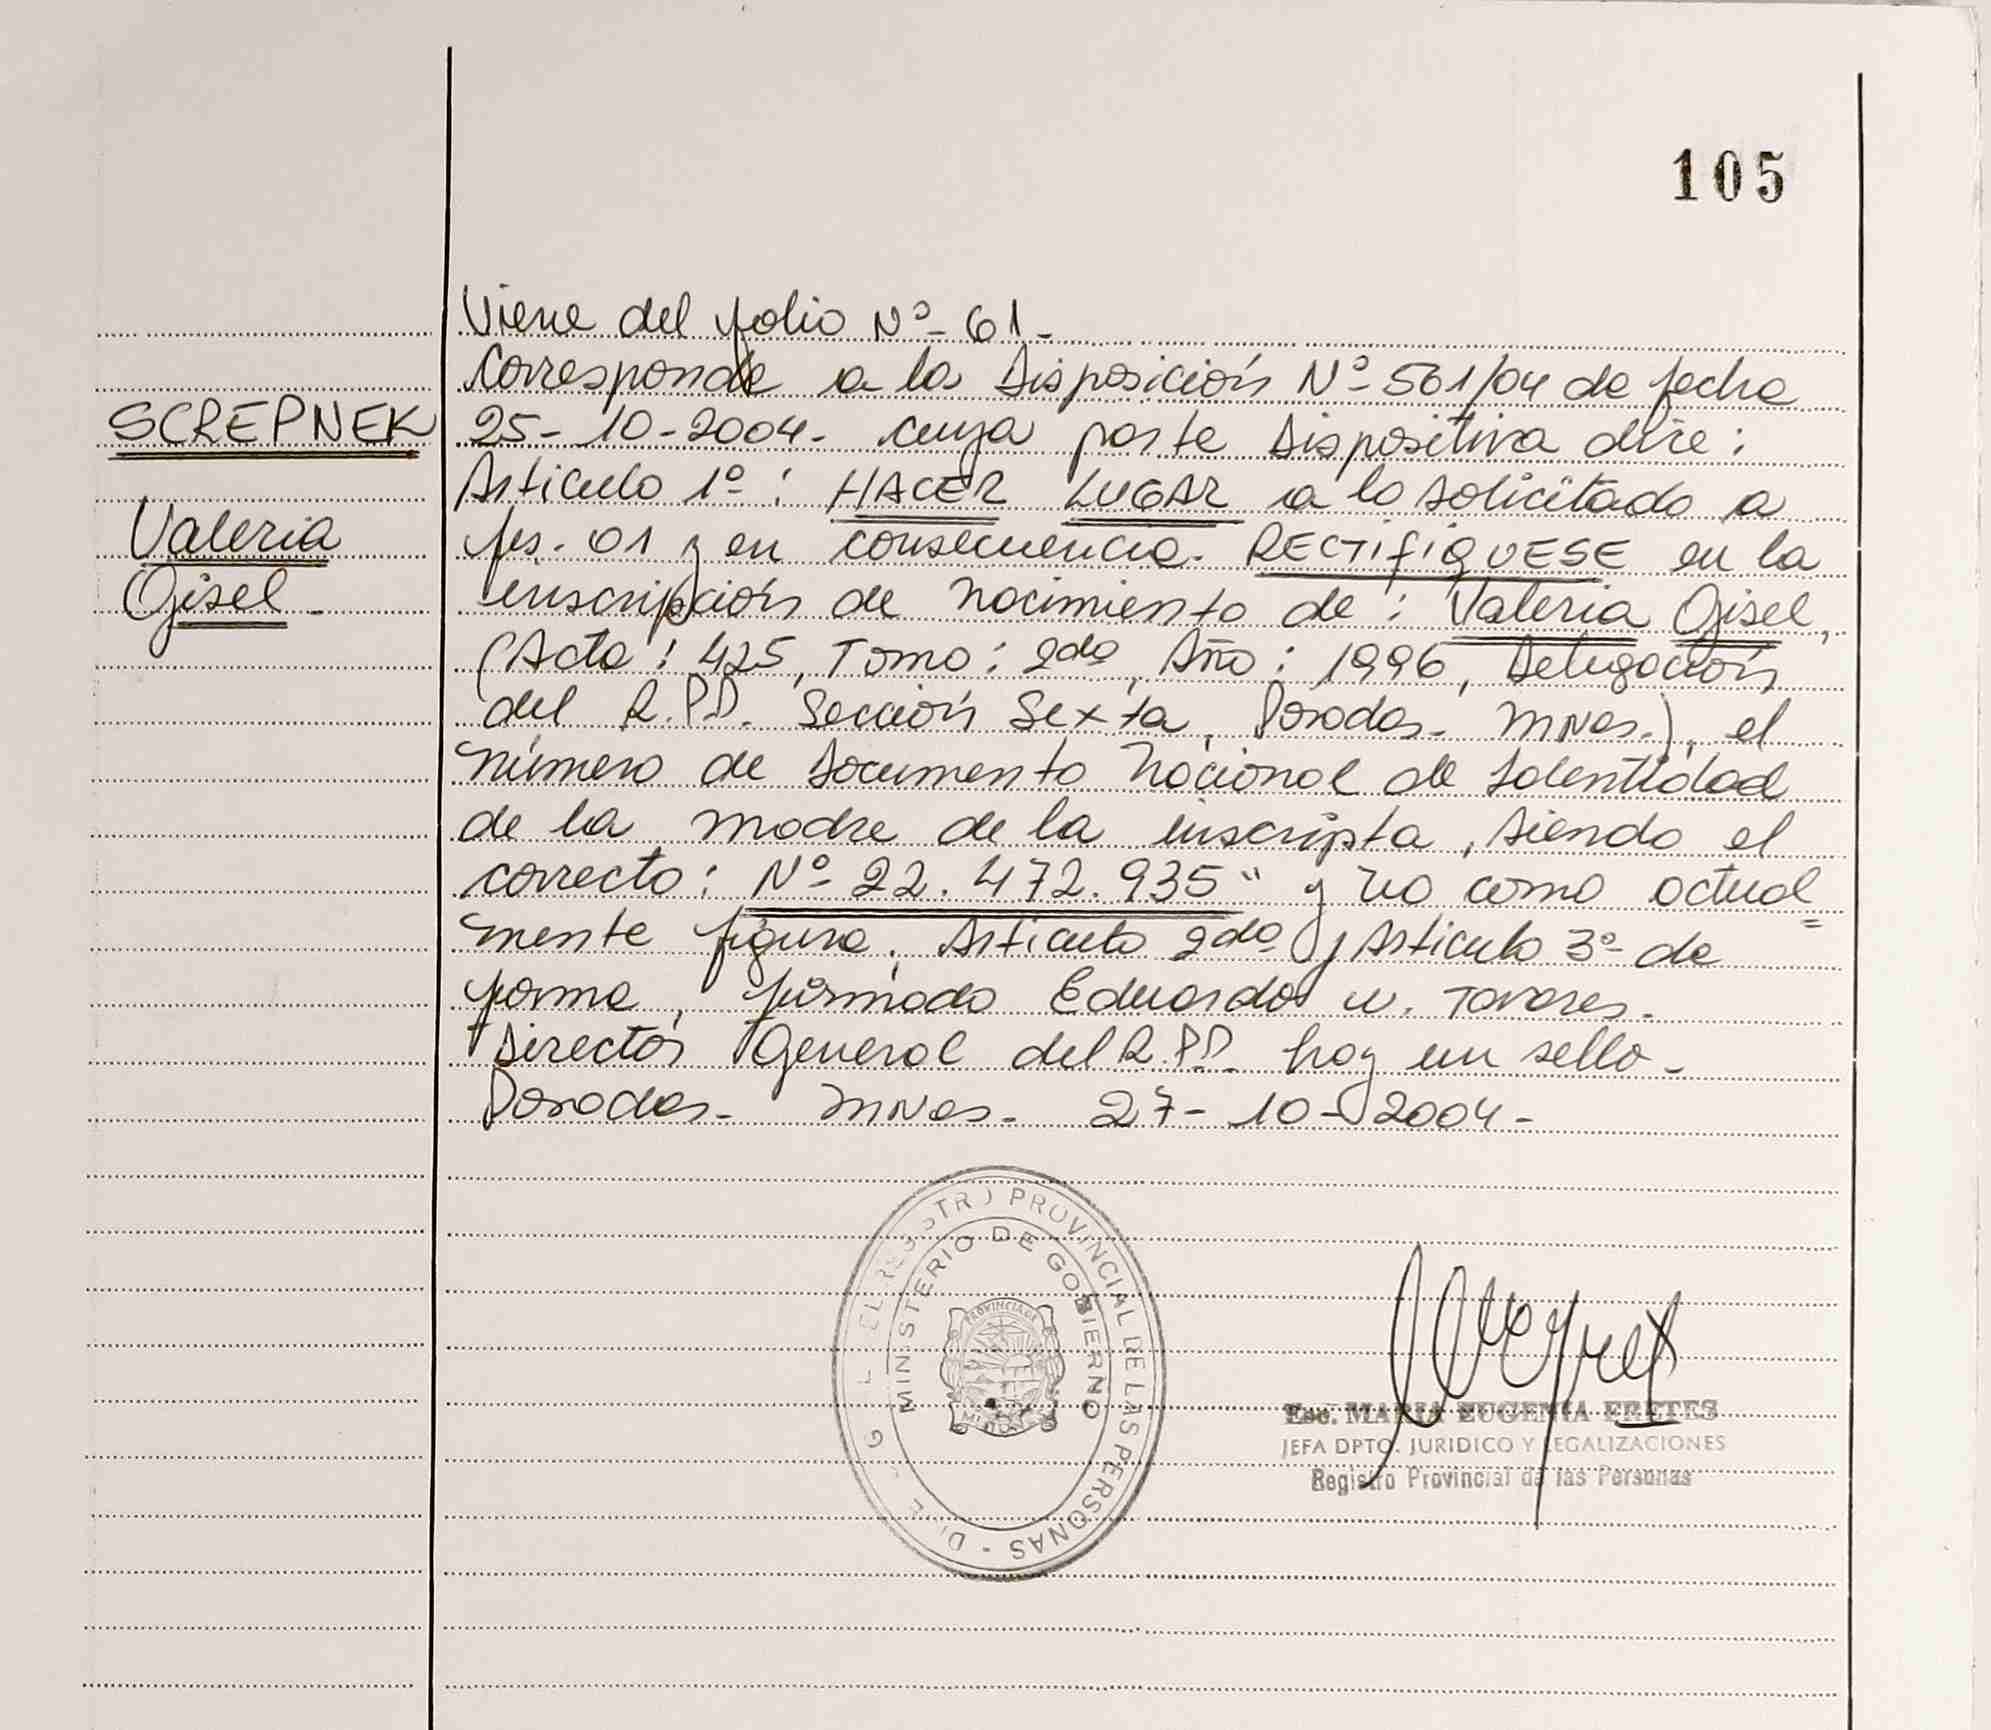 105
Viene del folio Nº- 61-
Corresponde a la Disposición Nº- 561/04 de fecha
SCREPNEK
25-10-2004- cuya parte Dispositiva dice:
Articulo 1º: HACER LUGAR a lo solicitado a
Valeria
fjs. 01 y en consecuencia. RECTIFIQUESE en la
Gisel-
inscripción de nacimiento de: Valeria Gisel,
(Acta: 425, Tomo: 2do, Año: 1996, Delegación
del R.P.P. Sección Sexta, Posadas- MNes.), el
número de Documento Nacional de Identidad
de la madre de la inscripta, siendo el
correcto: Nº- 22.472.935" y no como actual=
mente figura. Articulo 2do y Articulo 3º- de
forma, firmado Eduardo N. Tavares-
Director General del R.P.P. hay un sello-
Posadas- MNes- 27-10-2004-
REGISTRO PROVINCIAL DE LAS PERSONAS -
MINISTERIO DE GOBIERNO
PROVINCIA DE
Esc. MARIA EUGENIA FRETES
JEFA DPTO. JURIDICO Y LEGALIZACIONES
Registro Provincial de las Personas